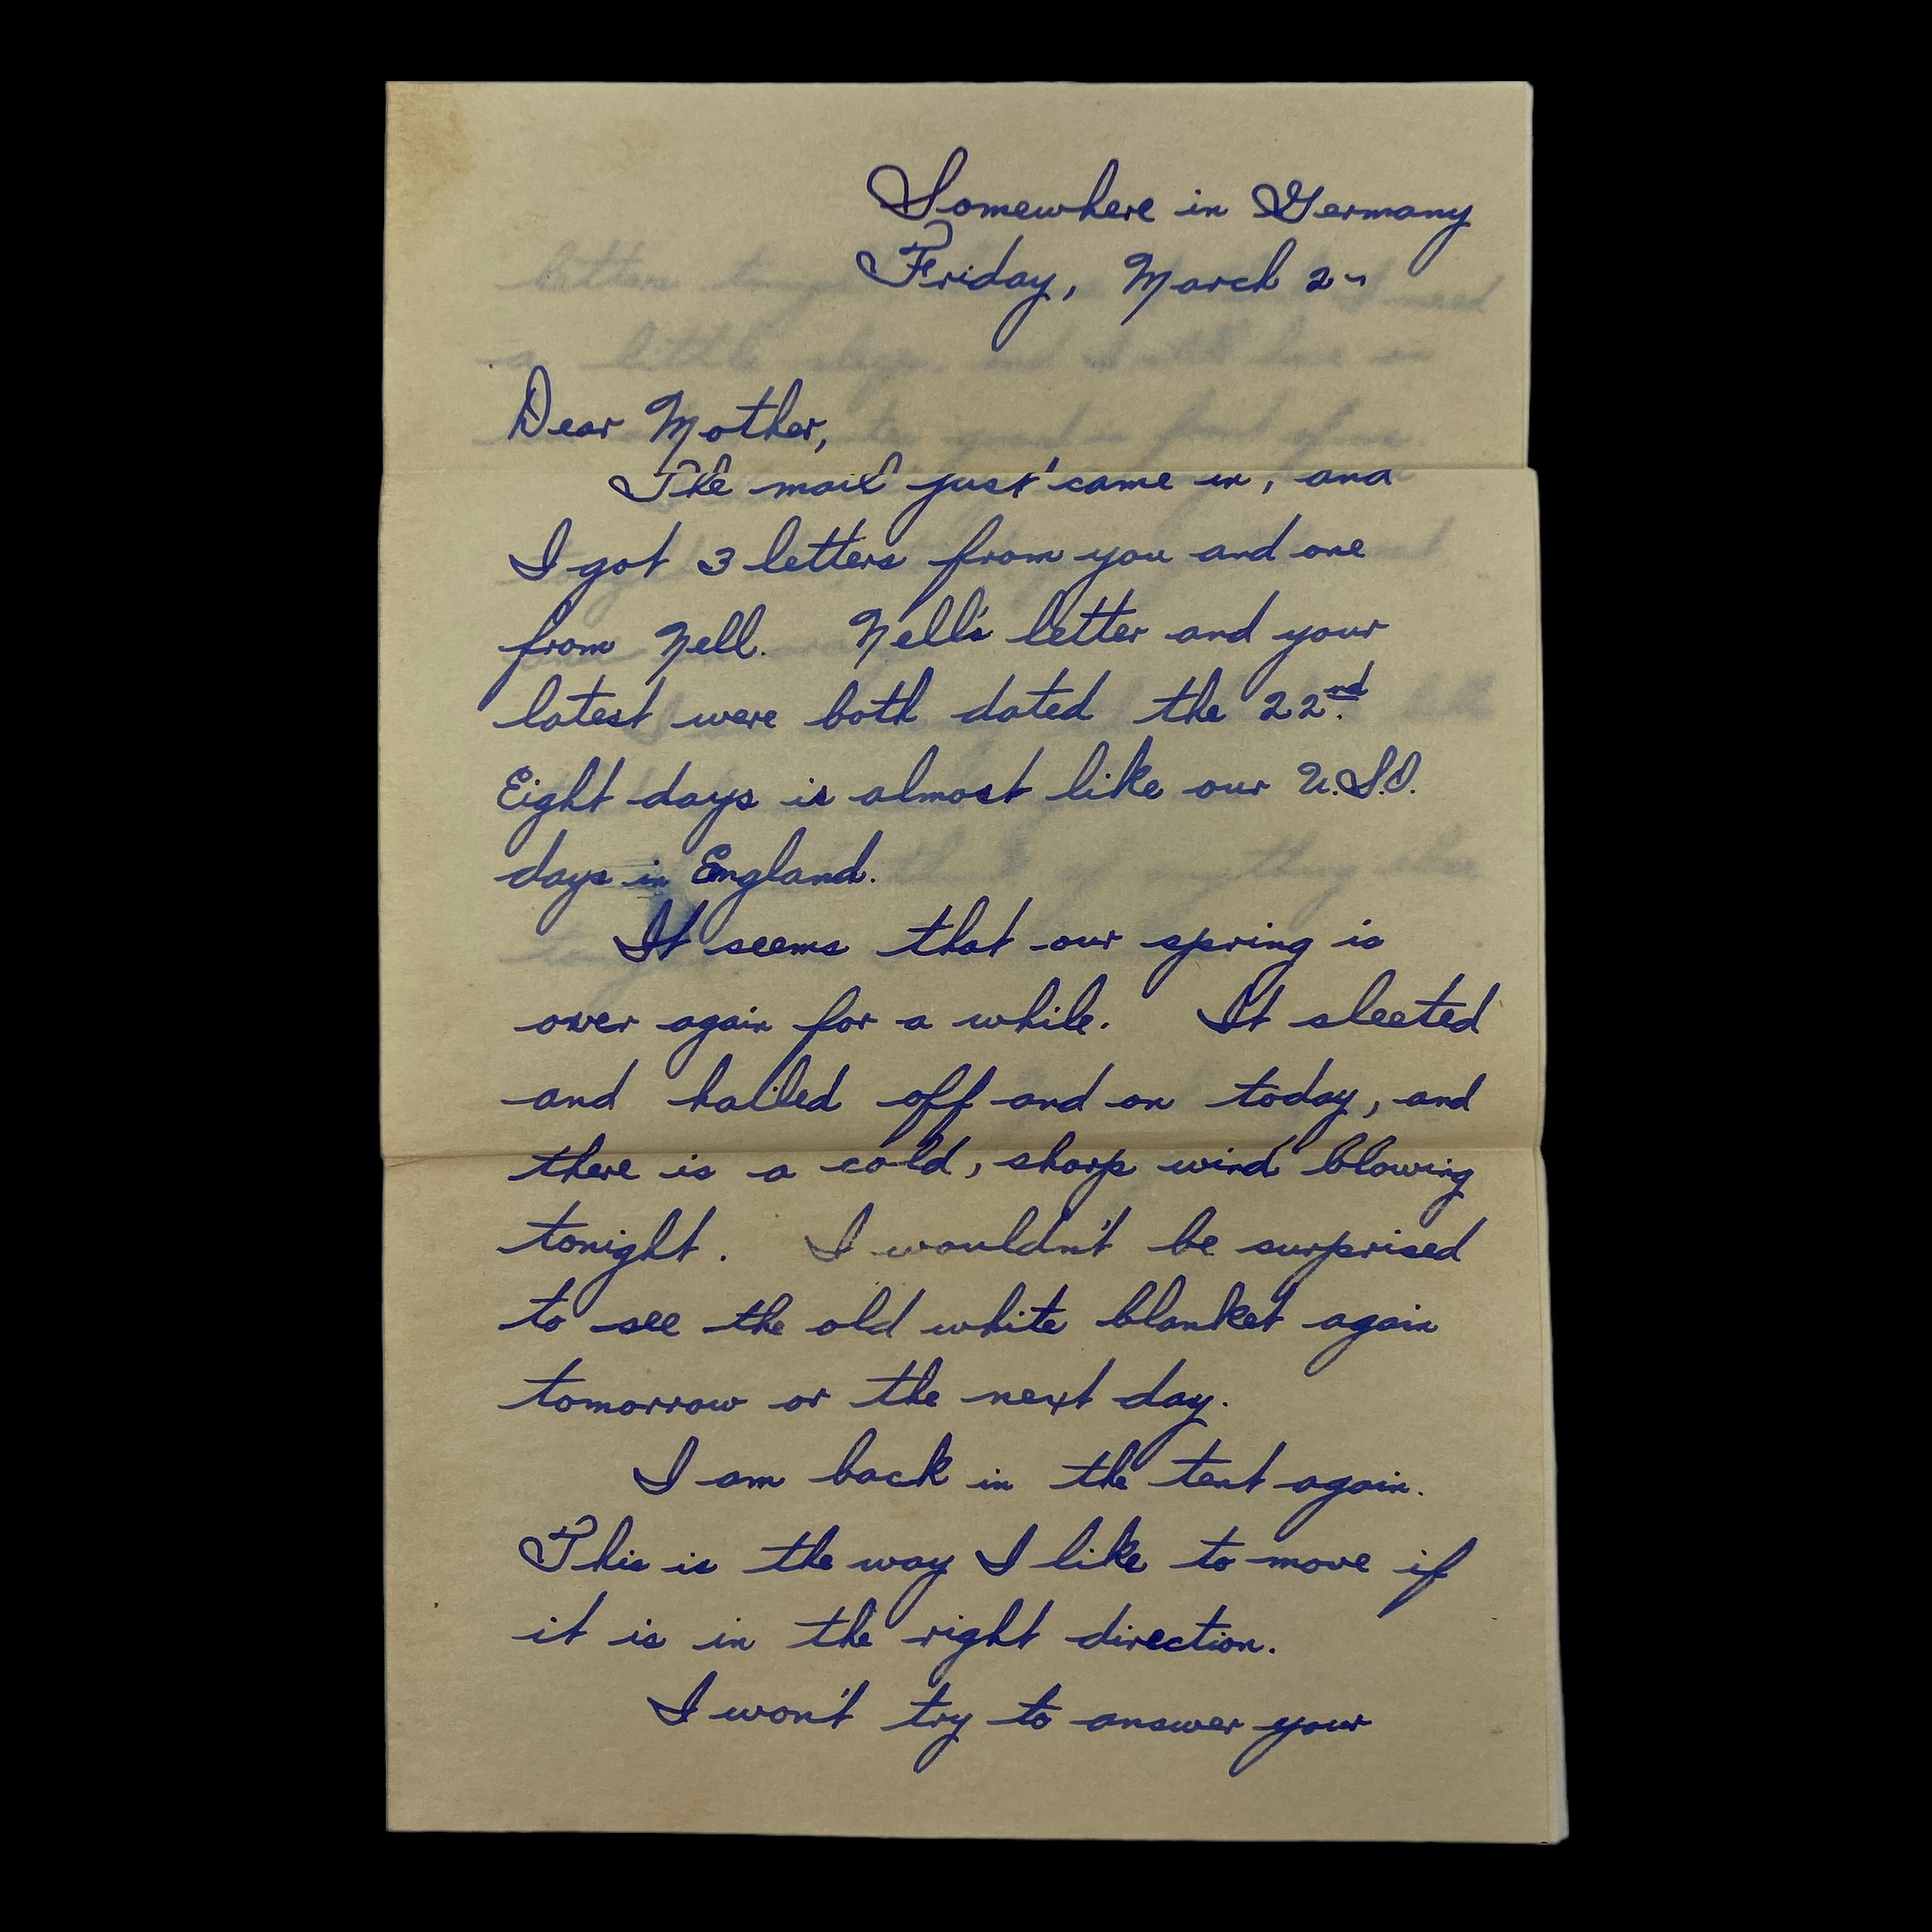 Somewhere in Germany
Friday, March 2-
Dear Mother,
The mail just came in, and
I got 3 letters from you and one
from Nell. Nell's letter and your
latest were both dated the 22nd.
Eight days is almost like our U.S.O.
days in England.
It seems that our spring is
over again for a while. It sleeted
and hailed off and on today, and
there is a cold, sharp wind blowing
tonight. I wouldn't be surprised
to see the old white blanket again
tomorrow or the next day.
I am back in the tent again.
This is the way I like to move if
it is in the right direction.
I won't try to answer your